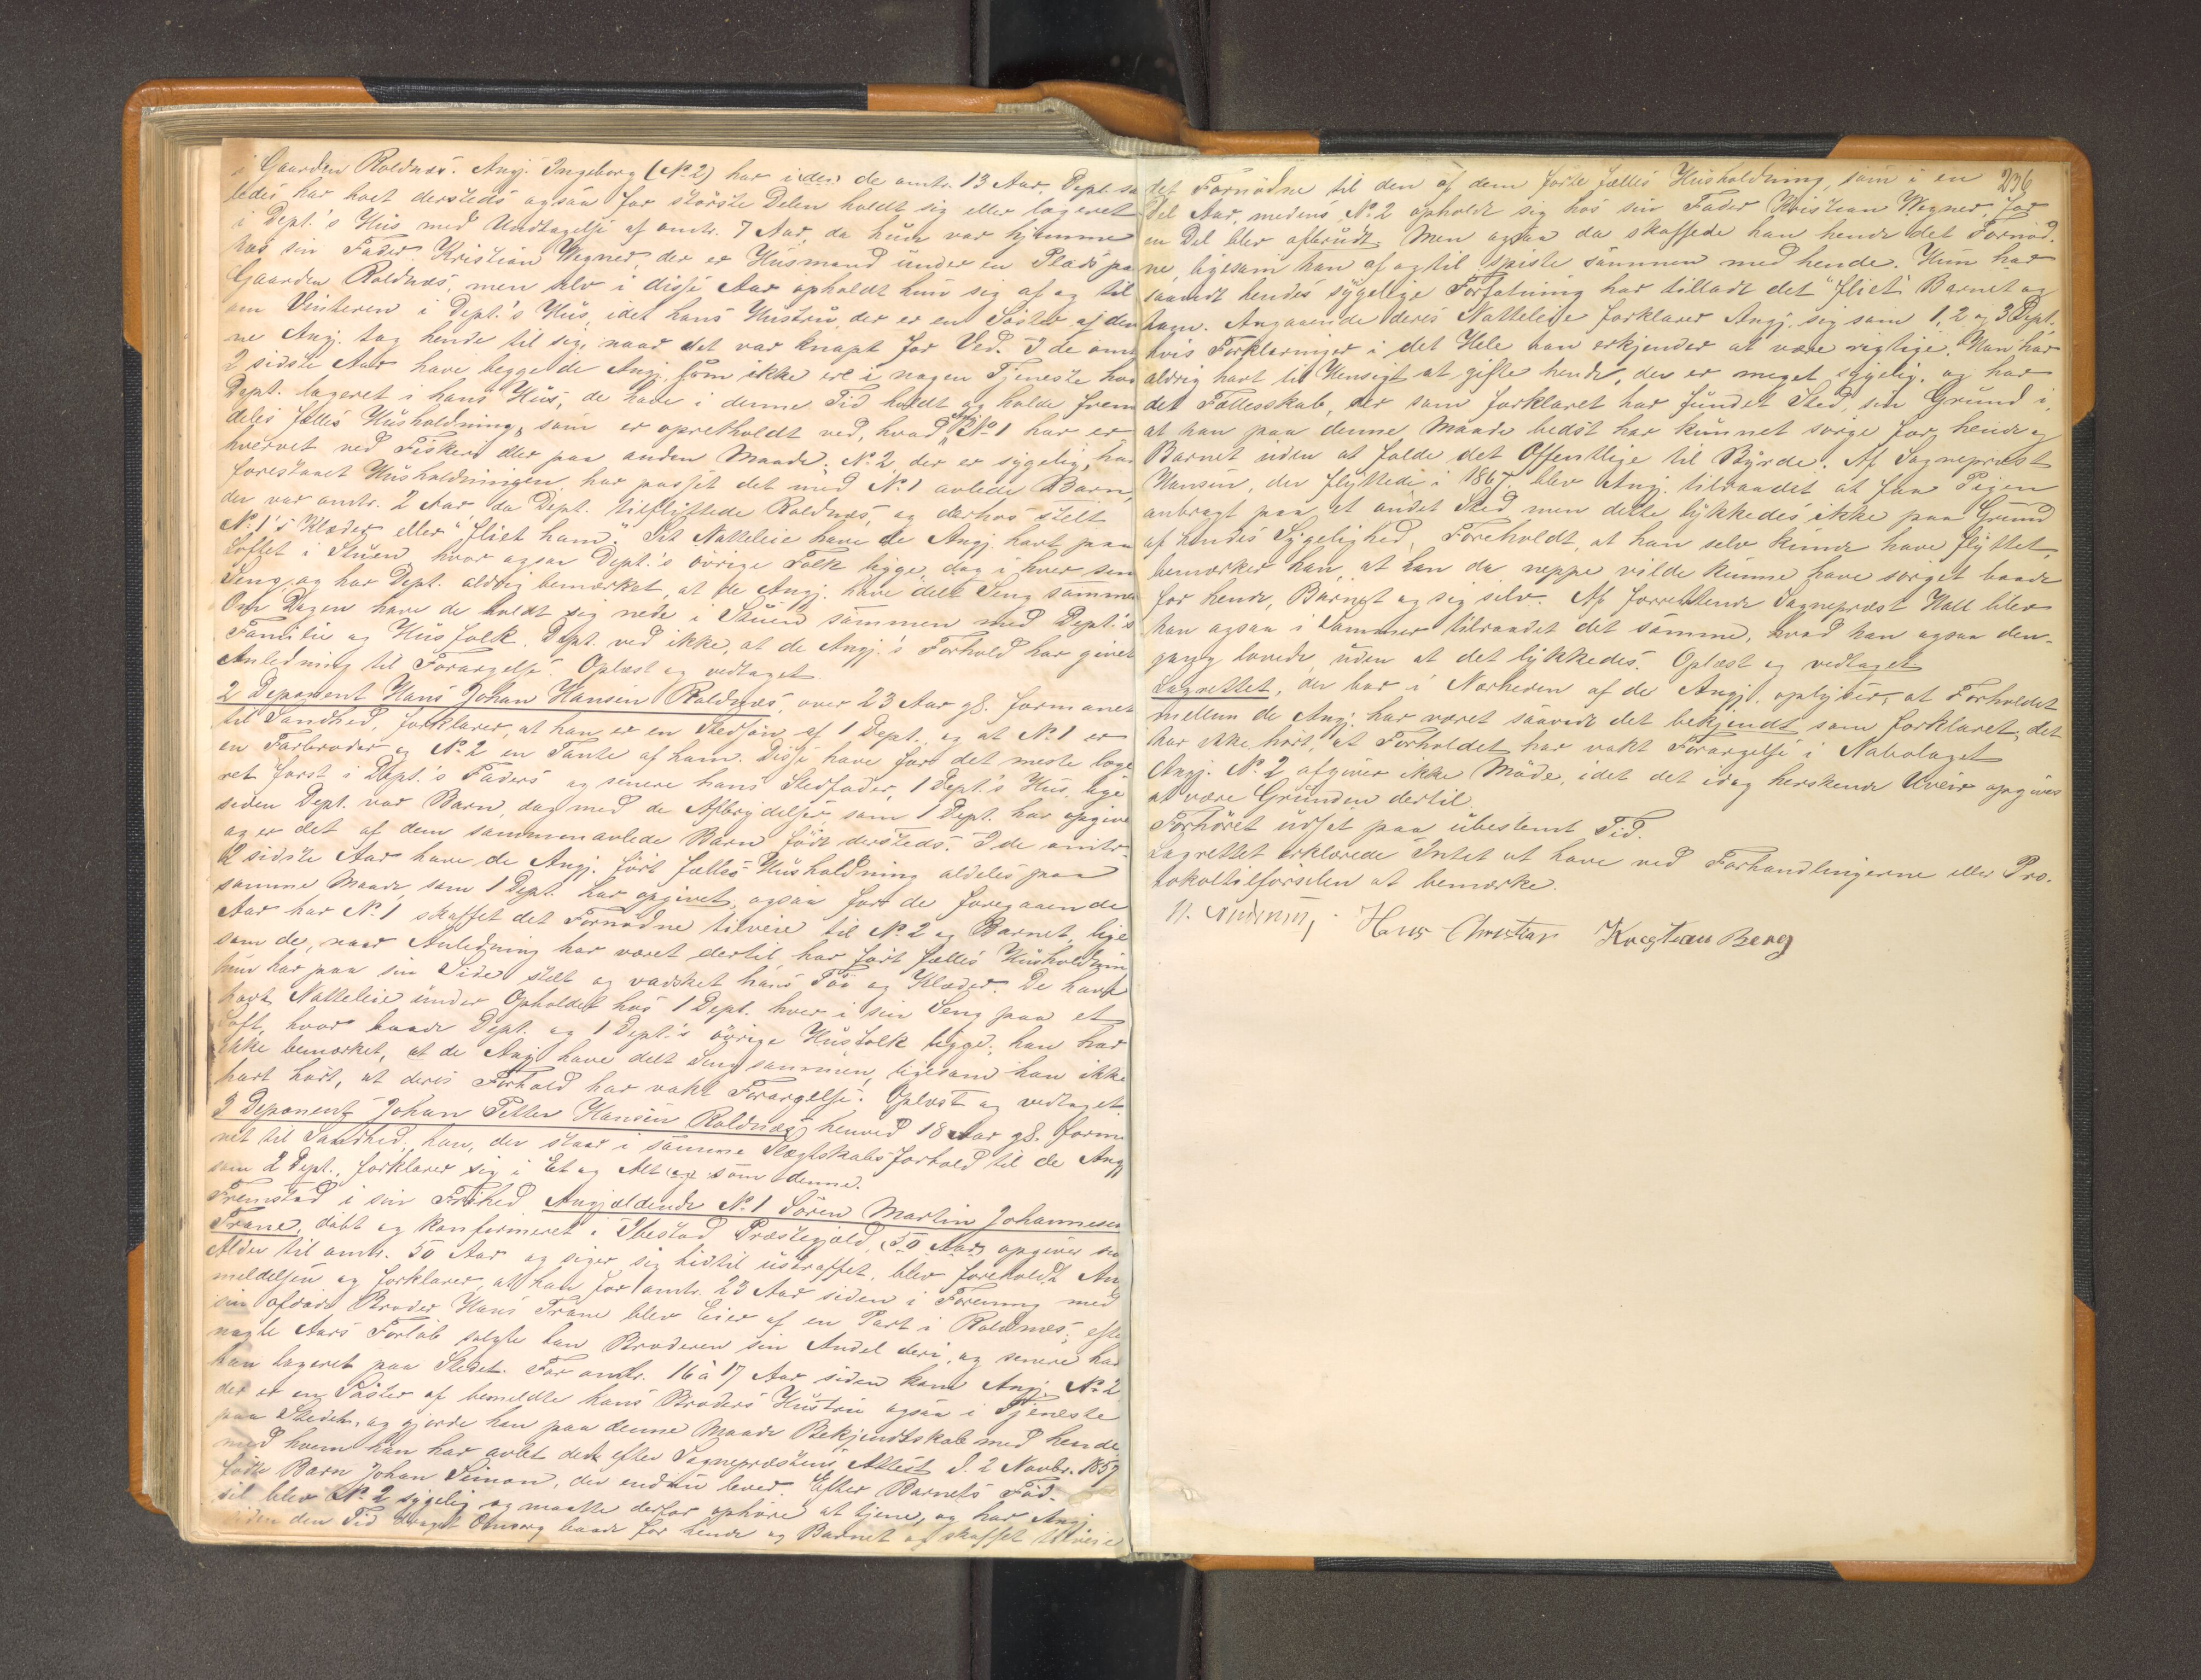 i Gaarden Roldnæs. Angj. Ingeborg (No 2) har i den de omtr. 13 Aar, Dept. sa
ledes har boet dersteds ogsaa for största Delen holdt sig eller logeret
i Dept.'s Hus med Undtagelse af omtr. 7 Aar, da hun var hjemme
hos sin Fader Kristian Wegner, der er Husmand under en Plads paa
Gaarden Roldnæs, men selv i disse Aar opholdt hun sig af og til
om Vinteren i Dept.'s Hus, idet hans Hustru, der er en Söster af den
ne Angj. tog hende til sig, naar det var knapt for Ved. I de omtr
2 sidste Aar have begge de Angj. som ikke ere i nogen Tjeneste hos
Dept. logeret i hans Hus, de have i denne Tid holdt og holde frem
deles fælles Husholdning, som er opretholdt ved, hvad No 1 har er
hvervet ved Fiskeri eller paa anden Maade. No 2, der er sygelig, har
forestaaet Husholdningen, har passet det med No 1 avlede Barn,
der var omtr. 2 Aar da Dept. tilflyttede Roldnæs, og derhos stelt
No 1's Klæder eller "fliet ham." Sit Natteleie have de Angj. havt paa
Loftet i Stuen, hvor ogsaa Dept.'s övrige Folk ligge, dog i hver sin
Seng, og har Dept. aldrig bemærket, at de Angj. have delt Seng sammen
Om Dagen have de holdt sig nede i Stuen sammen med Dept.'s
Familie og Husfolk. Dept. ved ikke, at de Angj.'s Forhold har givet
Anledning til Forargelse. Oplæst og vedtaget
2 Deponent Hans Johan Hansen Roldnæs, over 23 Aar gl. formanet
til Sandhed, forklarer, at han er en Stedsön af 1 Dept. og at No 1 er
en Farbroder og No 2 en Tante af ham. Disse have for det meste loge
ret först i Dept.'s Faders og senere hans Stedfader, 1 Dept.'s Hus, lige
siden Dept. var Barn, dog med de Afbrydelser, som 1 Dept. har opgive
og er det af dem sammenavlede Barn födt dersteds. I de omtr.
2 sidste Aar have de Angj. fört fælles Husholdning aldeles paa
samme Maade, som 1 Dept. har opgivet, ogsaa for de foregaaende
Aar har No 1 skaffet det Fornödne tilveie til No 2 og Barnet, lige
som de, naar Anledning har været dertil har fört fælles Husholdnin
hun har paa sin Side stelt og vadsket hans Töi og Klæder. De have
havt Natteleie under Opholdet hos 1 Dept. hver i sin Seng paa et
Loft, hvor baade Dept. og 1 Dept.'s övrige Husfolk ligge, han har
ikke bemærket, at de Angj. have delt Seng sammen, ligesom han ikke
havt hört, at deres Forhold har vakt Forargelse. Oplæst og vedtaget
3 Deponent Johan Petter Hansen Roldnæs henved 18 Aar gl. forma
net til Sandhed, han, der staar i samme Slægtskabsforhold til de Angj
som 2 Dept., forklarer sig i Et og Alt som denne.
Fremstod i sin Frihed Angjældende No 1 Sören Martin Johannesen
Trane, döbt og konfirmeret i Ibestad Præstegjæld, (50 Aar) opgiver sin
Alder til omtr. 50 Aar og siger sig hidtil ustraffet, blev foreholdt An
meldelsen og forklarer, at han for omtr. 23 Aar siden i Forening med
sin afdöde Broder Hans Trane blev Eier af en Part i Roldnæs; efter
nogle Aars Forlöb solgte han Broderen sin Andel deri, og senere har
han logeret paa Stedet. For omtr. 16 à 17 Aar siden kom Angj. No 2
der er en Söster af bemeldte hans Broders Hustru ogsaa i Tjeneste
paa Stedet, og gjorde han paa denne Maade Bekjendtskab med hende
med hvem han har avlet det efter Sognepræstens Attest d. 2 Novbr. 1857
födte Barn Johan Simon, der endnu lever. Efter Barnets Föd-
sel blev No 2 sygelig og maatte derfor ophöre at tjene, og har Angj.
siden den Tid draget Omsorg baade for hende og Barnet og skaffet tilveie
236
det Fornödne til den af dem förte fælles Husholdning, som i en
Del Aar, medens No 2 opholdt sig hos sin Fader Kristian Wegner, for
en Del blev afbrudt. Men ogsaa da skaffede han hende det Fornöd-
ne, ligesom han af og til spiste sammen med hende. Hun har
saavidt hendes sygelige Forfatning har tilladt det "fliet" Barnet og
ham. Angaaende deres Natteleie forklarer Angj. sig som 1, 2 og 3 Dept.
hvis Forklaringer i det Hele han erkjender at være rigtige. Han har
aldrig havt til Hensigt at gifte hende, der er meget sygelig, og har
det Fællesskab, der som forklaret har fundet Sted, sin Grund i,
at han paa denne Maade bedst har kunnet sörge for hende og
Barnet uden at falde det Offentlige til Byrde. Af Sognepræst
Hansen, der flyttede i 1867, blev Angj. tilraadet at faa Pigen
anbragt paa et andet Sted, men dette lykkedes ikke paa Grund
af hendes Sygelighed. Foreholdt, at han selv kunde have flyttet,
bemærker han, at han da neppe vilde kunne have sörget baade
for hende, Barnet og sig selv. Af forrettende Sognepræst Hall blev
han ogsaa i Sommer tilraadet det samme, hvad han ogsaa den-
gang lovede, uden at det lykkedes. Oplæst og vedtaget
Lagrettet, der bor i Nærheden af de Angj., oplyser, at Forholdet
mellem de Angj. har været saavidt det bekjendt som forklaret, det
har ikke hört, at Forholdet har vakt Forargelse i Nabolaget
Angj. No 2 afgiver ikke Möde, idet det idag herskende Uveir opgives
at være Grunden dertil.
Forhöret udsat paa ubestemt Tid.
Lagrettet erklærede Intet at have ved Forhandlingerne eller Pro-
tokoltilförselen at bemærke.
Hans Christian Kristian Berg